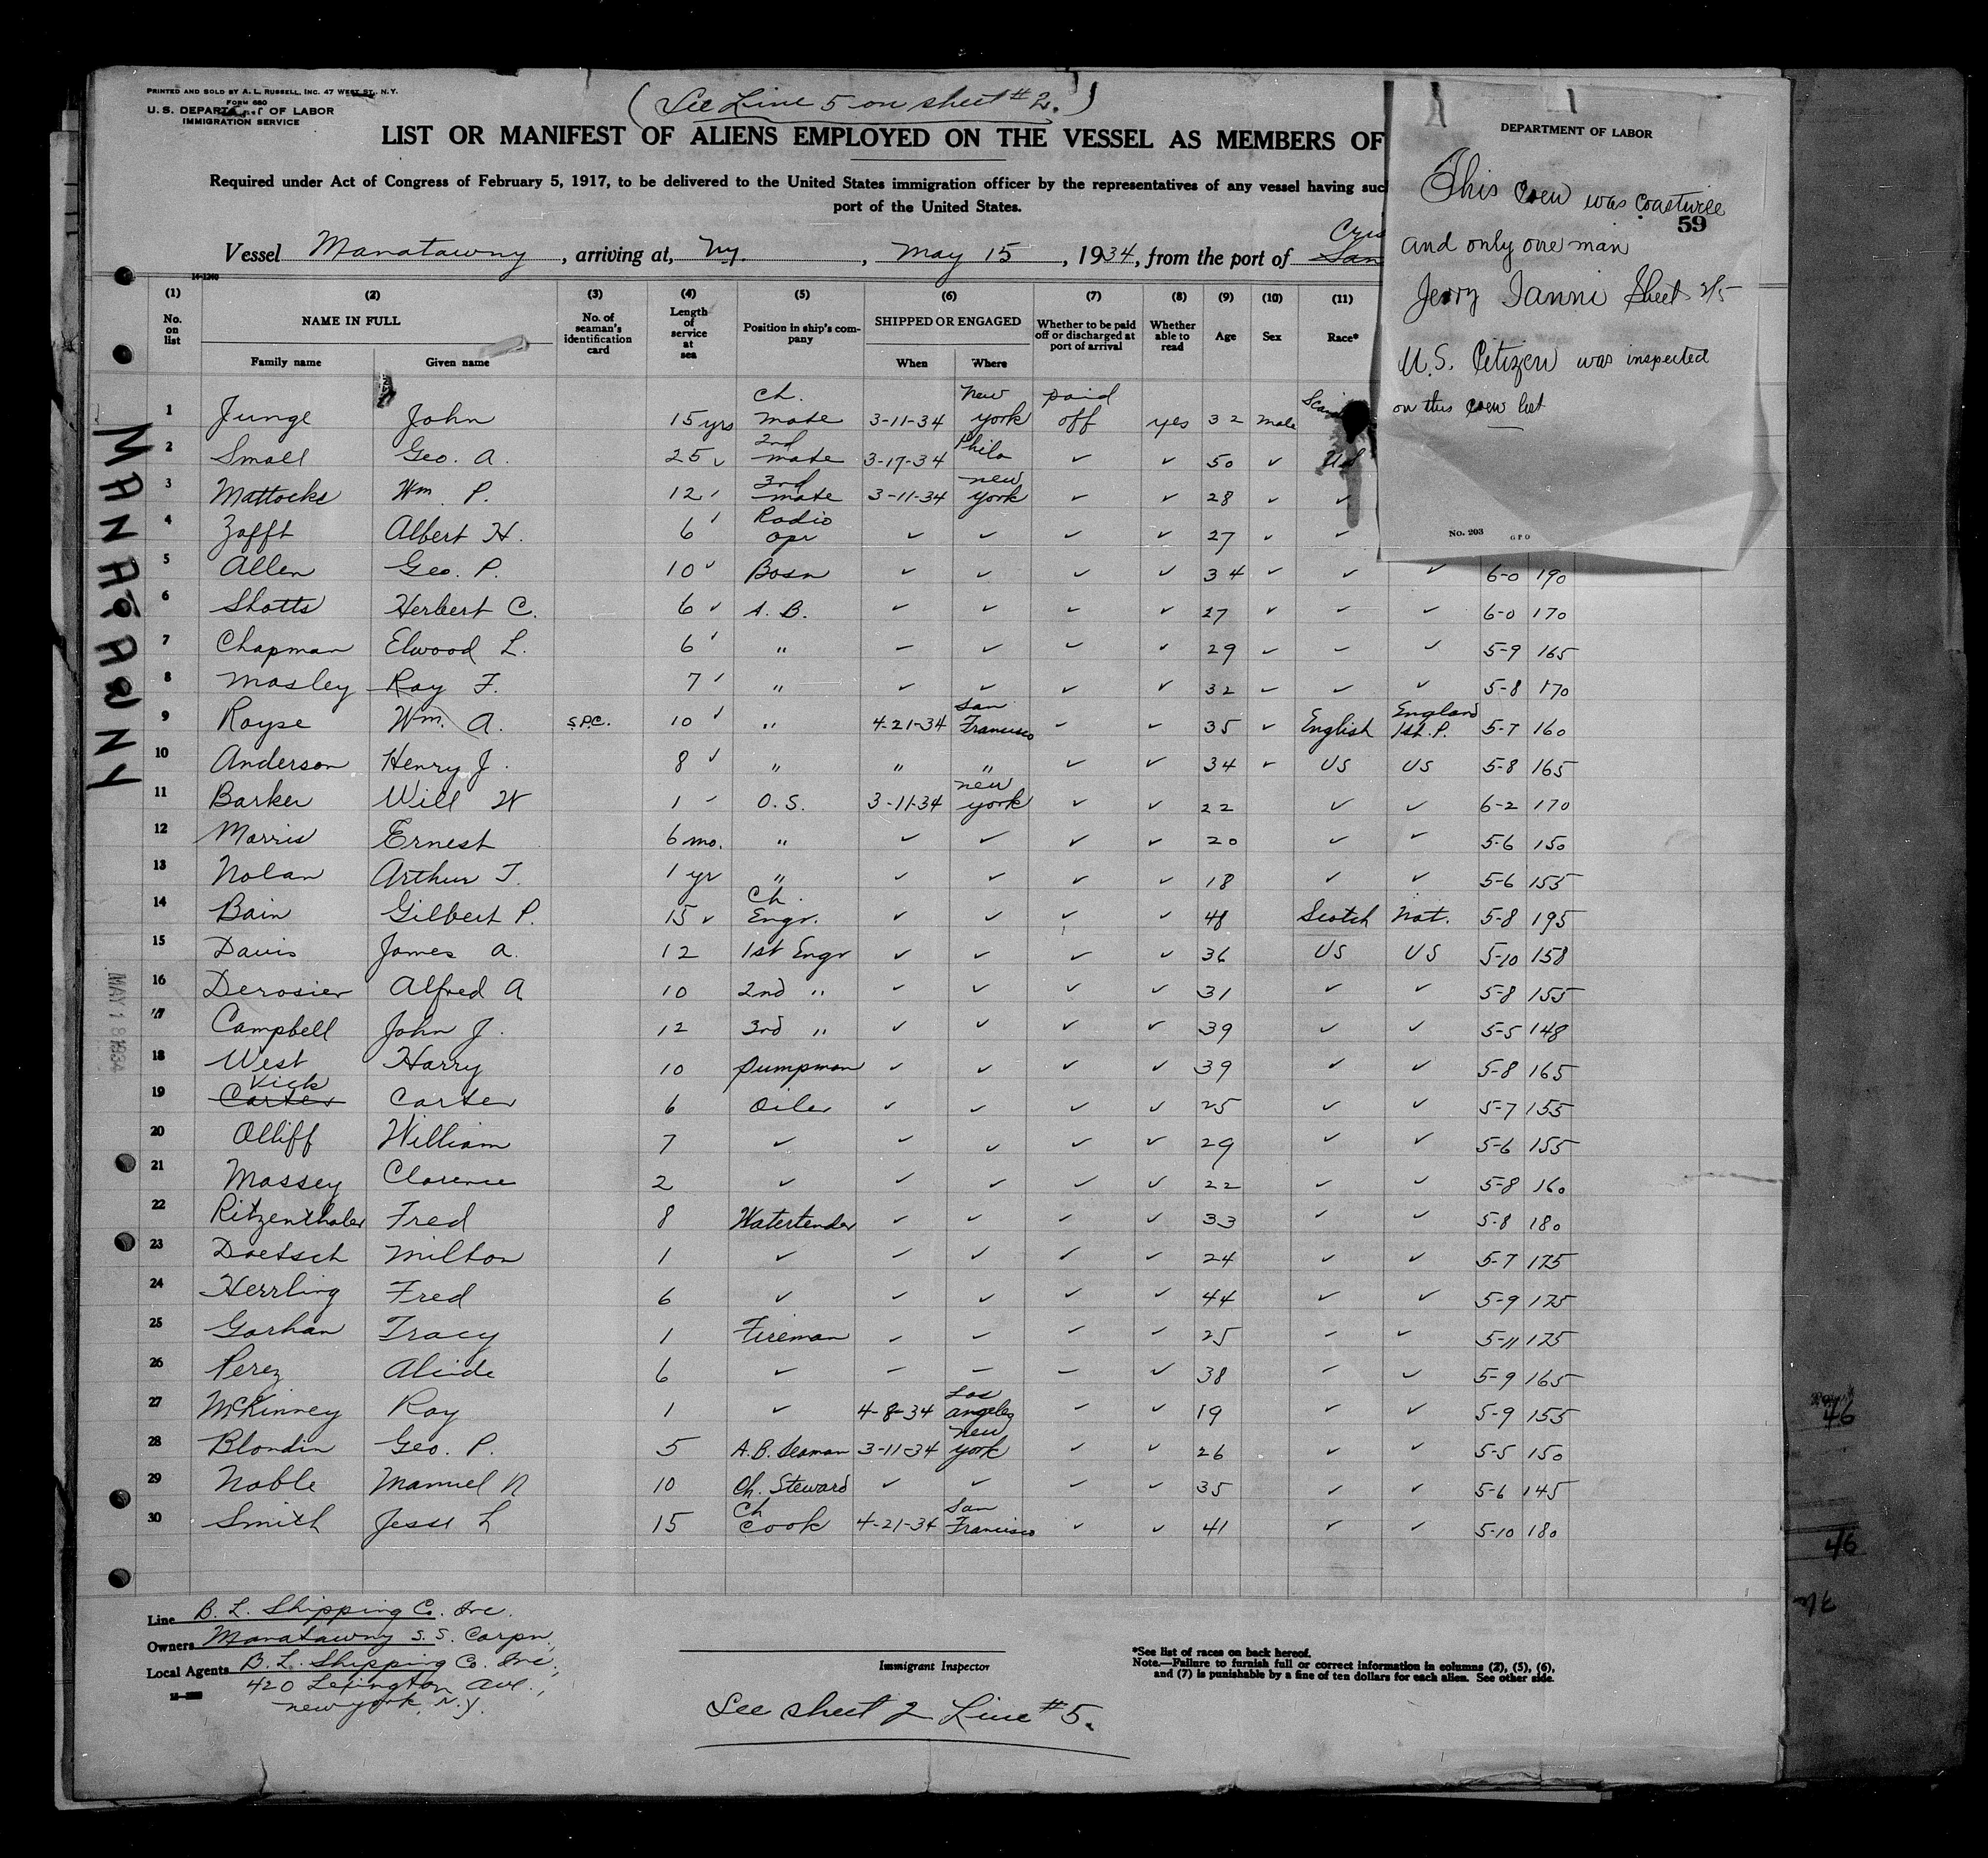 PRINTED AND SOLD BY A. L. RUSSELL, INC. 47 WEST ST., N.Y.
FORM 680
U. S. DEPARTMENT OF LABOR
IMMIGRATION SERVICE
(See Line 5 on sheet #2.)
LIST OR MANIFEST OF ALIENS EMPLOYED ON THE VESSEL AS MEMBERS OF
Required under Act of Congress of February 5, 1917, to be delivered to the United States immigration officer by the representatives of any vessel having suc
port of the United States.
Vessel Manatawny, arriving at, NY., May 15, 1934, from the port of Cris San
14-1240
DEPARTMENT OF LABOR
This crew was coastwise
59
and only one man
Jerry Ianni Sheet 2/5
U.S. Citizen was inspected
on this crew list
No. 203 GPO
(1) (2) (3) (4) (5) (6) (7) (8) (9) (10) (11)
No. on list NAME IN FULL Family name Given name No. of seaman's identification card Length of service at sea Position in ship's company SHIPPED OR ENGAGED When Where Whether to be paid off or discharged at port of arrival Whether able to read Age Sex Race*
1 Junge John 15 yrs Ch. mate 3-11-34 New York paid off yes 32 male Scand
2 Small Geo. A. 25 ✓ 2nd mate 3-17-34 Phila ✓ ✓ 50 ✓ US
3 Mattocks Wm. P. 12 ✓ 3rd mate 3-11-34 New York ✓ ✓ 28 ✓ ✓
4 Zafft Albert H. 6 ✓ Radio opr ✓ ✓ ✓ ✓ 27 ✓ ✓
5 Allen Geo. P. 10 ✓ Bosn ✓ ✓ ✓ ✓ 34 ✓ ✓ ✓ 6-0 190
6 Shotts Herbert C. 6 ✓ A. B. ✓ ✓ ✓ ✓ 27 ✓ ✓ ✓ 6-0 170
7 Chapman Elwood L. 6 ✓ " ✓ ✓ ✓ ✓ 29 ✓ ✓ ✓ 5-9 165
8 Mosley Ray F. 7 ✓ " ✓ ✓ ✓ ✓ 32 ✓ ✓ ✓ 5-8 170
9 Royse Wm. A. S.P.C. 10 ✓ " 4-21-34 San Francisco ✓ ✓ 35 ✓ English England 1st. P. 5-7 160
10 Anderson Henry J. 8 ✓ " " " ✓ ✓ 34 ✓ US US 5-8 165
11 Barker Will W 1 ✓ O. S. 3-11-34 New York ✓ ✓ 22 ✓ ✓ 6-2 170
12 Morris Ernest 6 mo. " ✓ ✓ ✓ ✓ 20 ✓ ✓ 5-6 150
13 Nolan Arthur T. 1 yr " ✓ ✓ ✓ ✓ 18 ✓ ✓ 5-6 155
14 Bain Gilbert P. 15 ✓ Ch. Engr. ✓ ✓ ✓ ✓ 48 Scotch Nat. 5-8 195
15 Davis James A. 12 1st Engr ✓ ✓ ✓ ✓ 36 US US 5-10 158
16 Derosier Alfred A 10 2nd " ✓ ✓ ✓ ✓ 31 ✓ ✓ 5-8 155
17 Campbell John J. 12 3rd " ✓ ✓ ✓ ✓ 39 ✓ ✓ 5-5 148
18 West Harry 10 Pumpman ✓ ✓ ✓ ✓ 39 ✓ ✓ 5-8 165
19 Vick Carter Carter 6 Oiler ✓ ✓ ✓ ✓ 25 ✓ ✓ 5-7 155
20 Olliff William 7 ✓ ✓ ✓ ✓ ✓ 29 ✓ ✓ 5-6 155
21 Massey Clarence 2 ✓ ✓ ✓ ✓ ✓ 22 ✓ ✓ 5-8 160
22 Ritzenthaler Fred 8 Watertender ✓ ✓ ✓ ✓ 33 ✓ ✓ 5-8 180
23 Doetsch Milton 1 ✓ ✓ ✓ ✓ ✓ 24 ✓ ✓ 5-7 175
24 Herrling Fred 6 ✓ ✓ ✓ ✓ ✓ 44 ✓ ✓ 5-9 175
25 Gorhan Tracy 1 Fireman ✓ ✓ ✓ ✓ 25 ✓ ✓ 5-11 175
26 Perez Alcide 6 ✓ ✓ ✓ ✓ ✓ 38 ✓ ✓ 5-9 165
27 McKinney Roy 1 ✓ 4-8-34 Los Angeles ✓ ✓ 19 ✓ ✓ 5-9 155
28 Blondin Geo. P. 5 A.B. Seaman 3-11-34 New York ✓ ✓ 26 ✓ ✓ 5-5 150
29 Noble Manuel N 10 Ch. Steward ✓ ✓ ✓ ✓ 35 ✓ ✓ 5-6 145
30 Smith Jesse L 15 Ch Cook 4-21-34 San Francisco ✓ ✓ 41 ✓ ✓ 5-10 180
MANATAWNY
MAY 18 1934
Line B. L. Shipping Co. Inc.
Owners Manatawny S.S. Corpn.,
Local Agents B. L. Shipping Co. Inc.,
420 Lexington Ave.,
New York, N.Y.
Immigrant Inspector
*See list of races on back hereof.
Note.—Failure to furnish full or correct information in columns (2), (5), (6),
and (7) is punishable by a fine of ten dollars for each alien. See other side.
See sheet 2 Line #5.
46
46